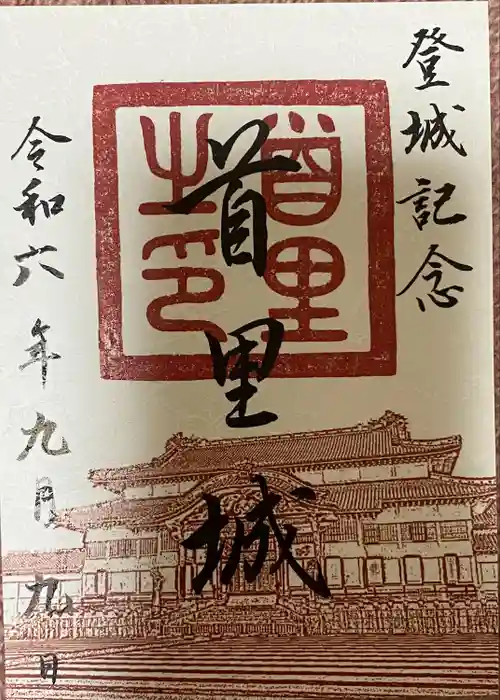 登城記念
首里城
首里之印
令和六年九月九日